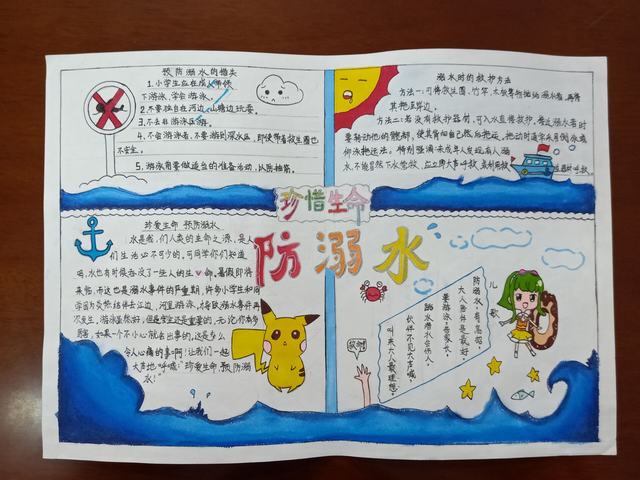 预防溺水的措失
1.小学生应在成人带领
下游泳、学会游泳。
2.不要独自在河边、山塘边玩耍。
3.不去非游泳区游泳。
4.不会游泳者,不要游到深水区,即使带着救生圈也
不安全。
5.游泳前要做适当的准备活动,以防抽筋。
溺水时的救护方法
方法一:可将救生圈、竹竿、木板等抛给溺水者,再将
其拖至岸边。
方法二:若没有救护器材,可入水直接救护。接近溺水者时
要转动他的髋部,使其背向自己然后拖运。拖运时通常采用侧泳或
仰泳拖运法。特别强调:未成年人发现有人溺
水,不能冒然下水营救,应立即大声呼救,或利用救
生器材呼救。
珍惜生命
防溺水
珍爱生命 预防溺水
水是我们人类的生命之源,是人
们生活必不可少的,可同学你们知道
吗,水也有时候吞没了一些人的生命。暑假即将
来临,而这也是溺水事件的严重期,许多小学生和同
学因为炎热结伴去江边、河里游泳,
不发生,游泳虽然好,但是安全还是重要的,无论你有多
厉害,如果一个不小心就会出事的。这是多么
令人心痛的事啊!让我们一起
大声地呼喊:“珍爱生命 预防溺
水!”
儿歌
防溺水,有高招,
大人陪伴是最好。
要游泳,喜家长,
跳水潜水会伤人。
伙伴不见大声喊,
叫来大人最理想。
救命啊